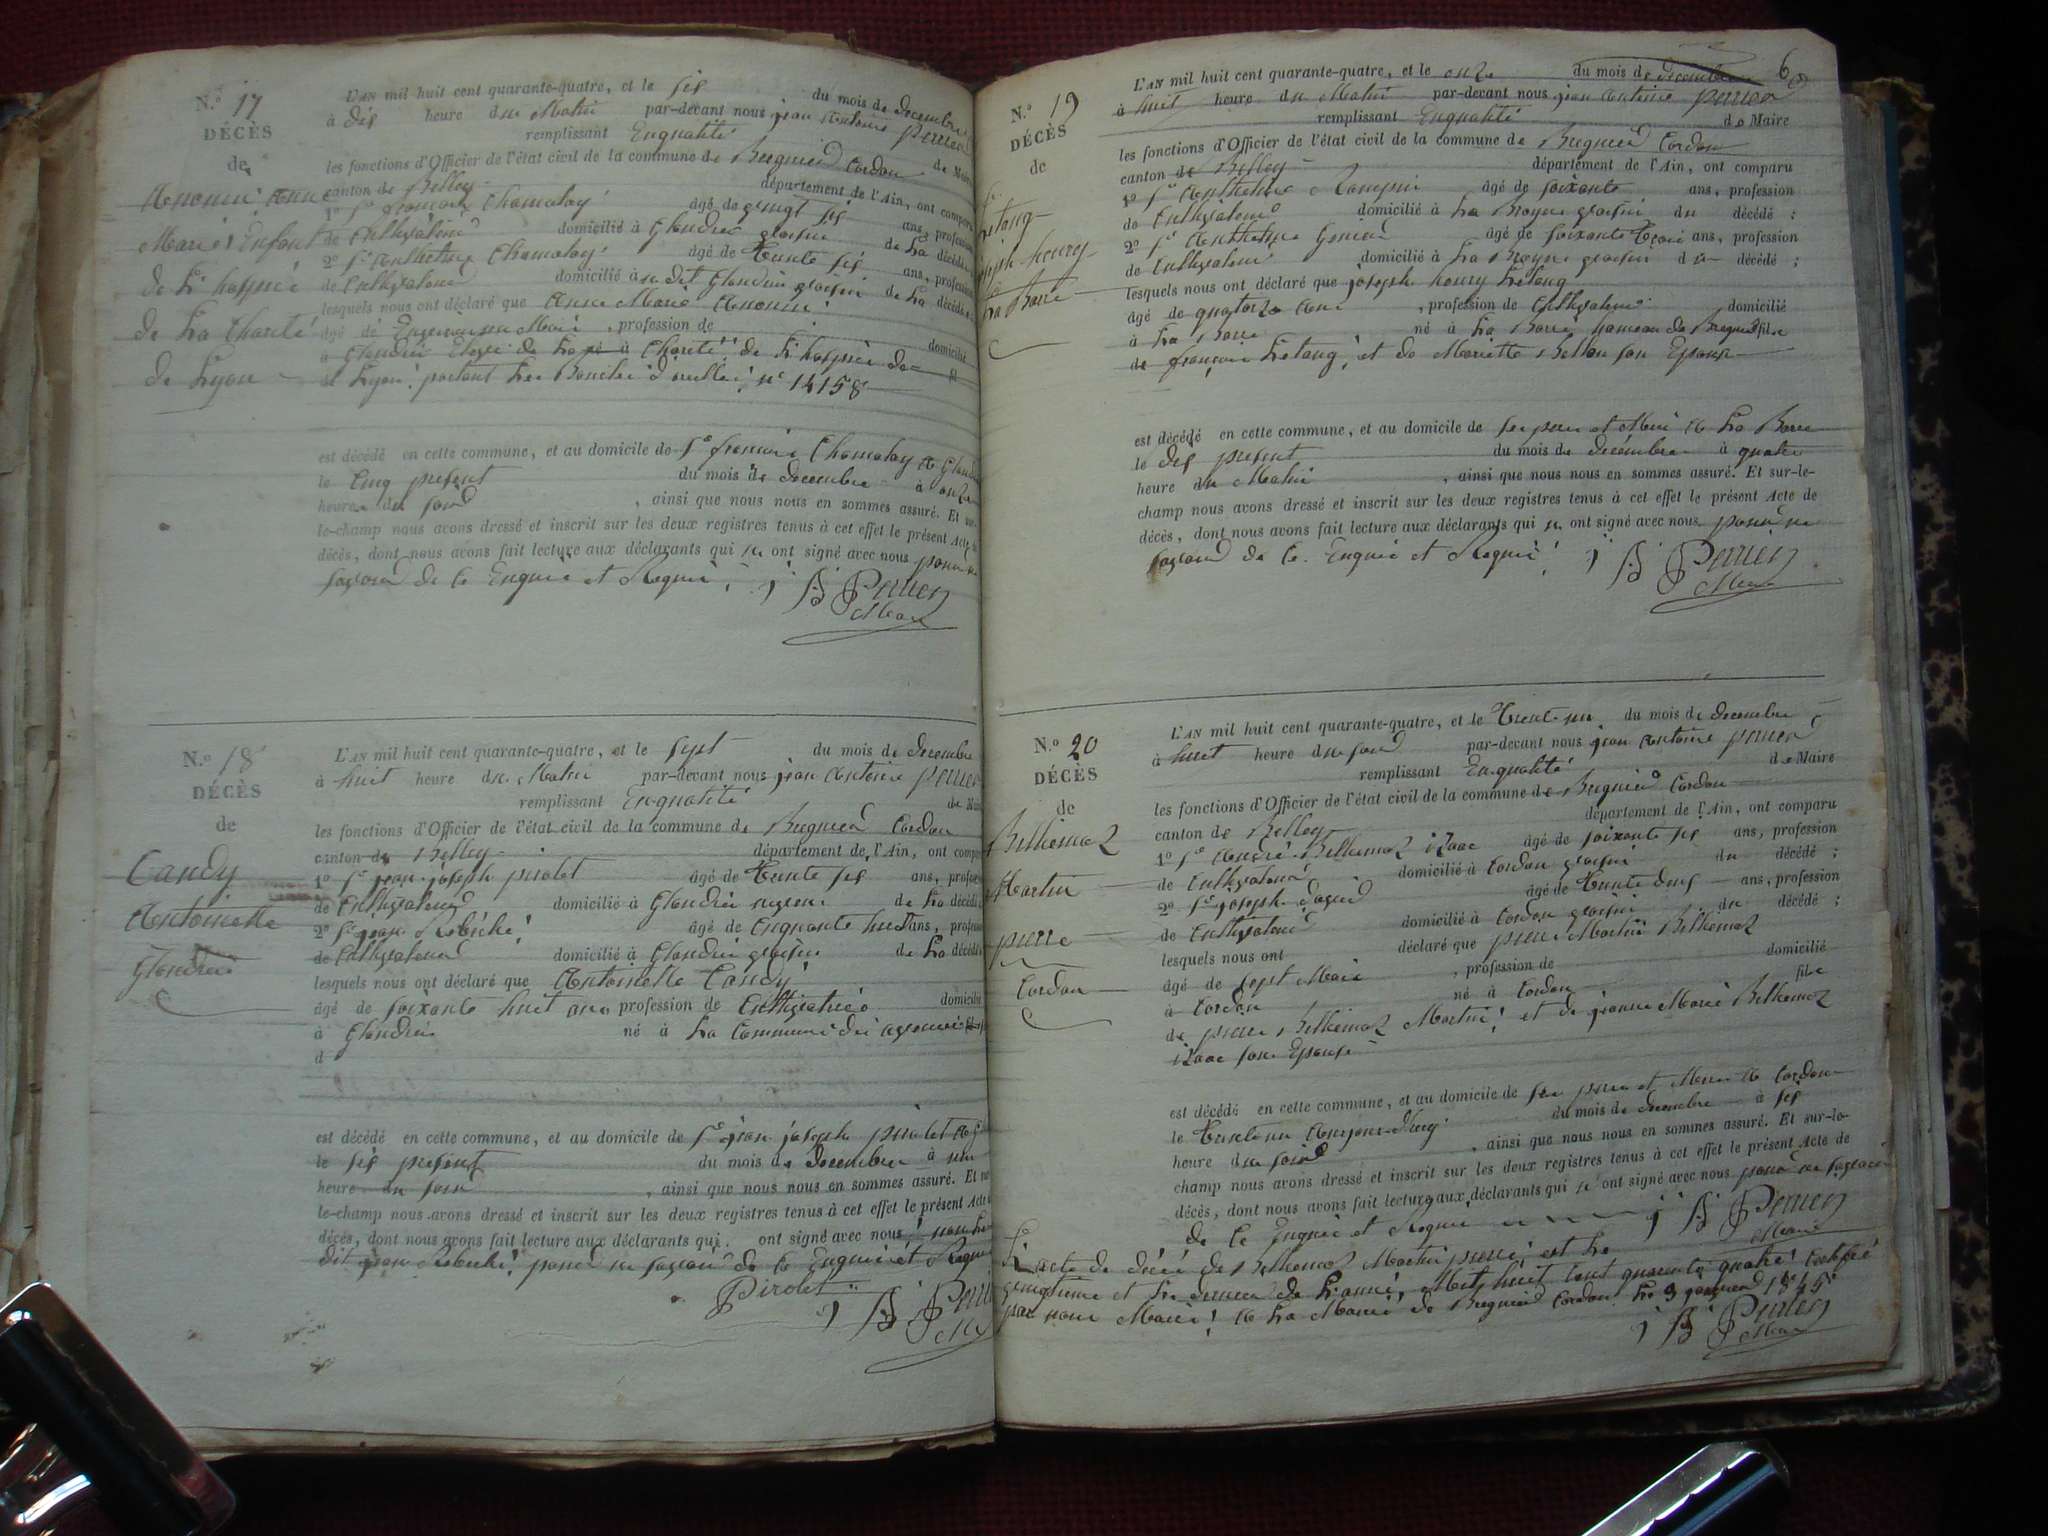 N.º 17
DÉCÈS
de
Marie Enfant
de L'hospice
de La Charité
de Lyon
L'AN mil huit cent quarante-quatre, et le six du mois de decembre
à dix heure du Matin par-devant nous jean Antoine Perrier
remplissant Enqualité de Maire
les fonctions d'Officier de l'état civil de la commune de Bregnier Cordon
canton de Belley département de l'Ain, ont comparu
1º Sr françois Chamalay âgé de vingt six ans, profession
de Cultivateur domicilié à Glandieu voisin de La décédée
2º Sr Anthelme Chamalay âgé de Trente six ans, profession
de Cultivateur domicilié à dit Glandieu voisin de La décédée
lesquels nous ont déclaré que Anne Marie
âgé de , profession de domicilié
à Glandieu Eleve de La Charité de L'hospice de
Lyon portant Les Boucles d'oreilles nº 14158
est décédé en cette commune, et au domicile de Sr françois Chamalay
le Cinq présent du mois de decembre à onze
heure du soir , ainsi que nous nous en sommes assuré. Et sur-
le-champ nous avons dressé et inscrit sur les deux registres tenus à cet effet le présent Acte de
décès, dont nous avons fait lecture aux déclarants qui n' ont signé avec nous pour ne
savoir de ce Enquis et Requis
j A Perrier
Maire
N.º 18
DÉCÈS
de
Candy
Antoinette
Glandieu
L'AN mil huit cent quarante-quatre, et le sept du mois de decembre
à huit heure du Matin par-devant nous jean Antoine Perrier
remplissant Enqualité de Maire
les fonctions d'Officier de l'état civil de la commune de Bregnier Cordon
canton de Belley département de l'Ain, ont comparu
1º Sr jean joseph pirolet âgé de Trente six ans, profession
de Cultivateur domicilié à Glandieu de La décédée
2º Sr jean âgé de Cinquante huit ans, profession
de Cultivateur domicilié à Glandieu voisin de La décédée
lesquels nous ont déclaré que Antoinette Candy
âgé de soixante huit ans profession de Cultivatrice domicilié
à Glandieu né à La Commune
d
est décédé en cette commune, et au domicile de Sr jean joseph pirolet
le six présent du mois de decembre à une
heure du soir , ainsi que nous nous en sommes assuré. Et sur-
le-champ nous avons dressé et inscrit sur les deux registres tenus à cet effet le présent Acte
décès, dont nous avons fait lecture aux déclarants qui ont signé avec nous
dit jean pour ne savoir de ce Enquis et Requis
Pirolet j A Perrier
N.º 19
DÉCÈS
de
Letang
joseph henry
La Barre
L'AN mil huit cent quarante-quatre, et le onze du mois de decembre 6
à huit heure du Matin par-devant nous jean Antoine Perrier
remplissant Enqualité de Maire
les fonctions d'Officier de l'état civil de la commune de Bregnier Cordon
canton de Belley département de l'Ain, ont comparu
1º Sr Anthelme âgé de soixante ans, profession
de Cultivateur domicilié à La voisin du décédé ;
2º Sr Anthelme âgé de soixante Trois ans, profession
de Cultivateur domicilié à La voisin du décédé ;
lesquels nous ont déclaré que joseph henry Letang
âgé de quatorze ans , profession de Cultivateur domicilié
à La Barre né à La Barre hameau de Bregnier fils
de françois Letang et de Mariette son Epouse
est décédé en cette commune, et au domicile de ses pere et Mere à La Barre
le dix présent du mois de decembre à quatre
heure du Matin , ainsi que nous nous en sommes assuré. Et sur-le-
champ nous avons dressé et inscrit sur les deux registres tenus à cet effet le présent Acte de
décès, dont nous avons fait lecture aux déclarants qui n' ont signé avec nous pour ne
savoir de ce Enquis et Requis
j A Perrier
Maire
N.º 20
DÉCÈS
de
Belhemoz
Martin
pierre
Cordon
L'AN mil huit cent quarante-quatre, et le Trente un du mois de decembre
à huit heure du soir par-devant nous jean Antoine Perrier
remplissant Enqualité de Maire
les fonctions d'Officier de l'état civil de la commune de Bregnier Cordon
canton de Belley département de l'Ain, ont comparu
1º Sr André Belhemoz izaac âgé de soixante six ans, profession
de Cultivateur domicilié à Cordon voisin du décédé ;
2º Sr joseph âgé de Trente deux ans, profession
de Cultivateur domicilié à Cordon voisin du décédé ;
lesquels nous ont déclaré que pierre Martin Belhemoz
âgé de sept Mois , profession de domicilié
à Cordon né à Cordon fils
de pierre Belhemoz Martin et de jeanne Marie Belhemoz
izaac son Epouse
est décédé en cette commune, et au domicile de ses pere et Mere à Cordon
le Trente un du mois de decembre à six
heure du soir , ainsi que nous nous en sommes assuré. Et sur-le-
champ nous avons dressé et inscrit sur les deux registres tenus à cet effet le présent Acte de
décès, dont nous avons fait lecture aux déclarants qui n' ont signé avec nous pour ne savoir
de ce Enquis et Requis j A Perrier
Maire
L'acte de décès de Belhemoz Martin pierre est Le
vingtieme et Le dernier de L'année Mil huit cent quarante quatre
par nous Maire à La Mairie de Bregnier Cordon Le 3 janvier 1845
j A Perrier
Maire